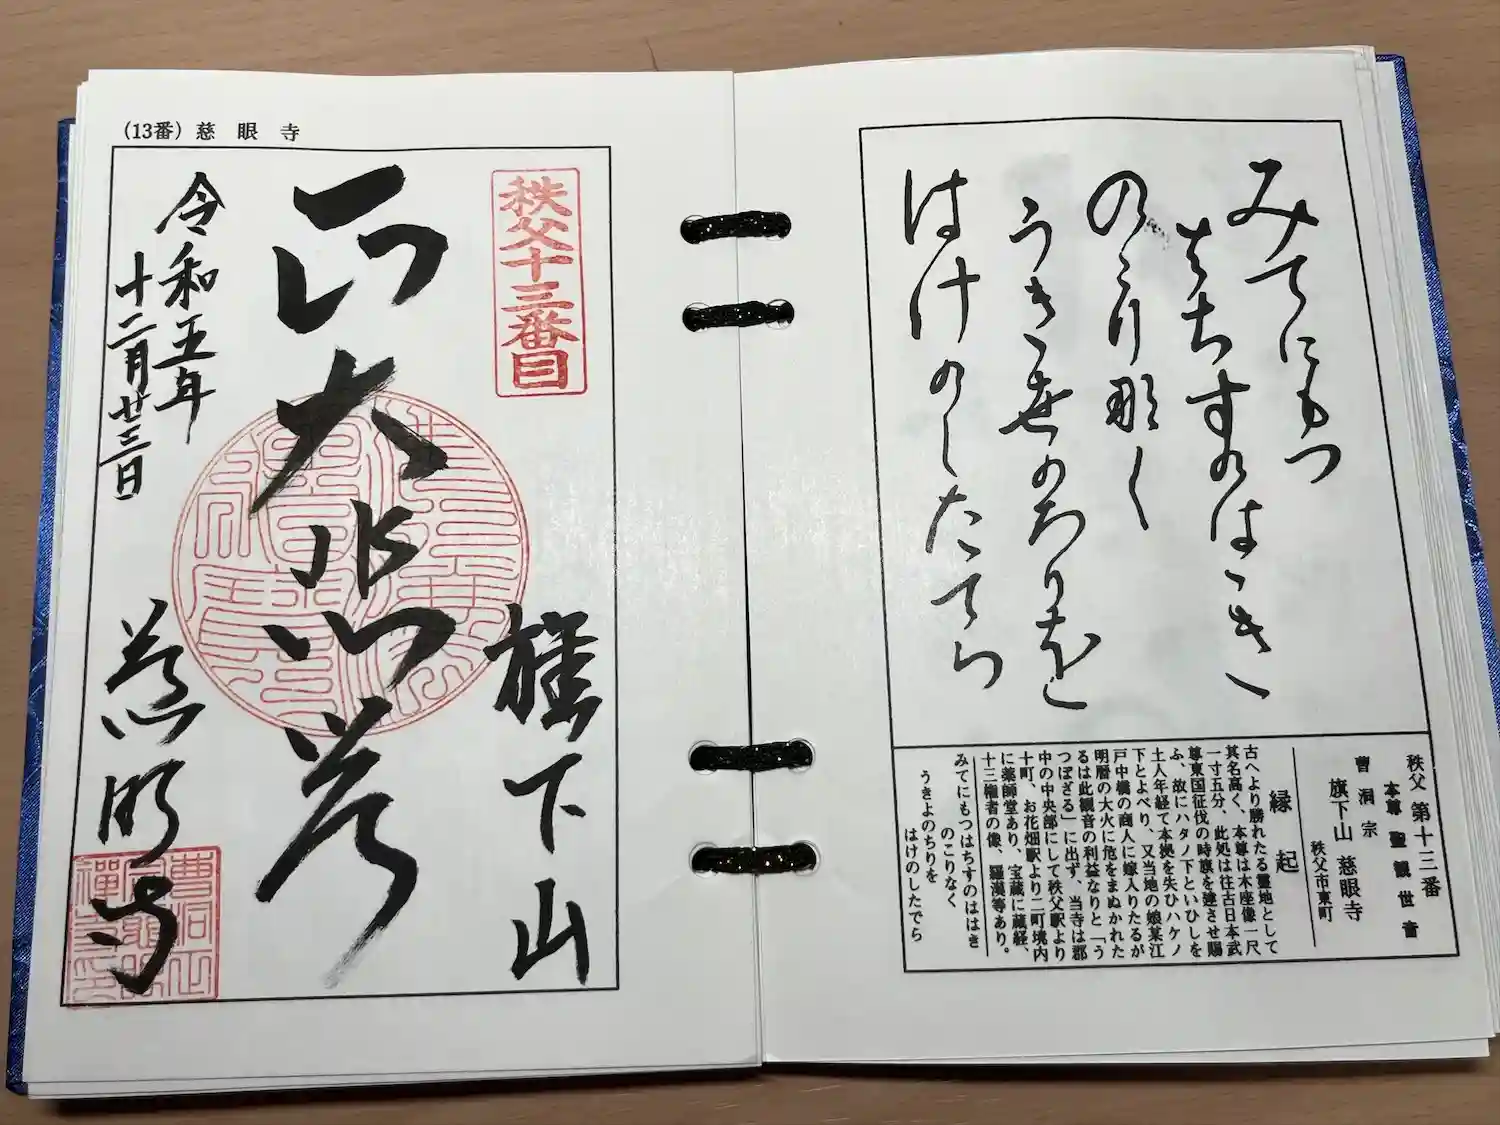 (13番) 慈眼寺
秩父十三番目
旗下山
大悲
令和五年
十二月廿三日
慈眼寺
みてにもつ
はちすのはゝき
のこり那く
うき世のちりを
はけのしたてら
秩父 第十三番
本尊 聖観世音
曹洞宗
旗下山 慈眼寺
秩父市東町
縁起
古へより勝れたる霊地として
其名高く、本尊は木座像一尺
一寸五分、此処は往古日本武
尊東国征伐の時旗を建させ賜
ふ、故にハタノ下といひしを
土人年経て本拠を失ひハケノ
下とよべり、又当地の娘某江
戸中橋の商人に嫁入りたるが
明暦の大火に危をまぬかれた
るは此観音の利益なりと「う
つぼざる」に出ず、当寺は郡
中の中央部にして秩父駅より
十町、お花畑駅より二町境内
に薬師堂あり、宝蔵に蔵経、
十三権者の像、羅漢等あり。
みてにもつはちすのははき
のこりなく
うきよのちりを
はけのしたでら